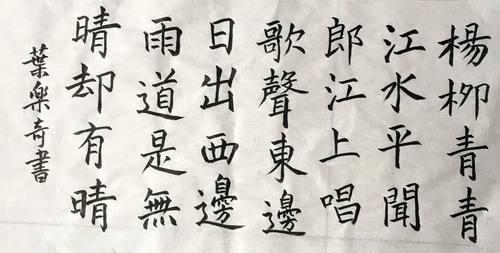 楊柳青青
江水平聞
郎江上唱
歌聲東邊
日出西邊
雨道是無
晴却有晴
葉樂奇書